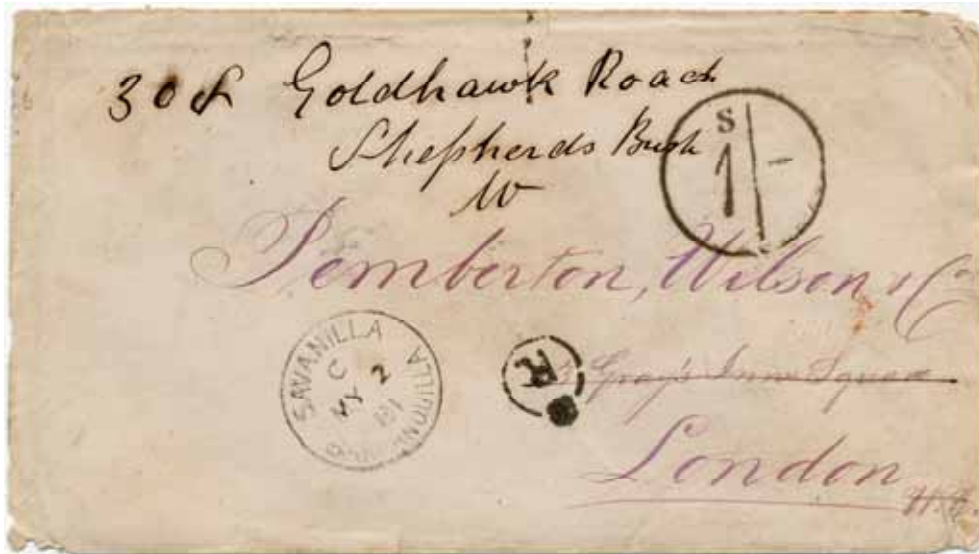 308 Goldhawk Road
Shepherds Bush
W
S
1/-
Pemberton, Wilson & Co
SAVANILLA
C
MY 2
81
R
3 Gray's Inn Square
London